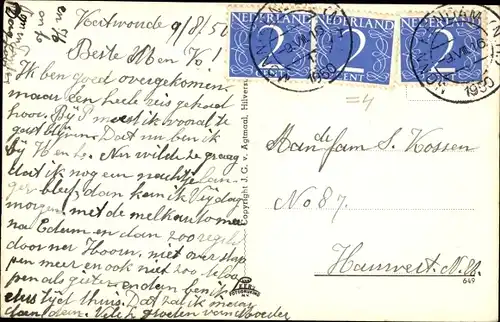 Kertwoude 9/8/50
Beste M en Vo!
Ik ben goed overgekomen
maar een heele reis gehad
hoor. Bij P moest ik vooral te
gast blijven. Dat nu ben ik
bij Vo en Lo. Nu wilde ze graag
dat ik nog een nachtje lan-
ger bleef, dan kom ik Vrijdag
morgen met de melkauto mee
na Edam en dan zoo
door naar Hoorn, met over stap
pen meer en ook niet zoo
pen als gisteren en dan ben ik
thuis. Dat zal ik maar
doen hoor. groeten van Moeder
NEDERLAND
2
CENT
NEDERLAND
2
CENT
NEDERLAND
2
CENT
1950
1950
=4
Aan de fam S. Kossen
No 87.
Hauwert N.H.
Copyright J. G. v. Agtmaal, Hilversum
649